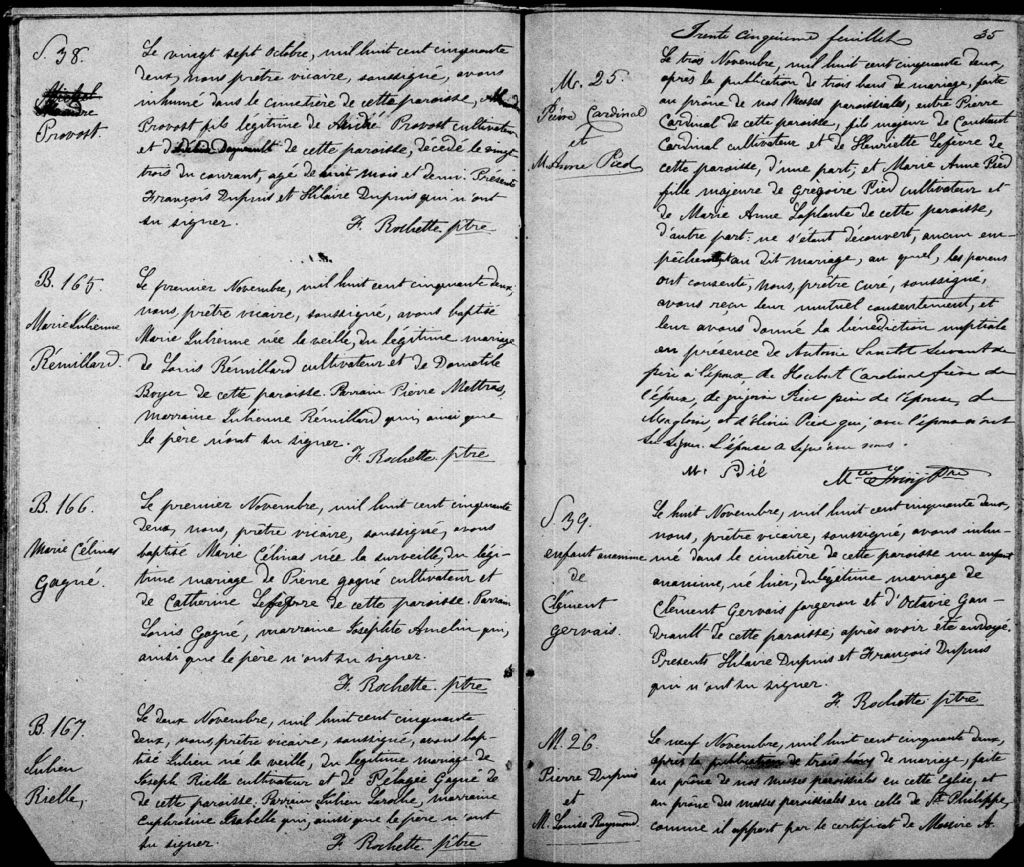 S. 38.
Provost.
Le vingt sept Octobre, mil huit cent cinquante
deux, nous prêtre vicaire, soussigné, avons
inhumé dans le cimetière de cette paroisse,
Provost fils légitime de André Provost cultivateur
et de cette paroisse, décédé le vingt
trois du courant, agé de huit mois et demi. Présents
François Dupuis et Hilaire Dupuis qui n'ont
su signer.
F. Rochette ptre
B. 165.
Marie Julienne
Rémillard.
Le premier Novembre, mil huit cent cinquante deux,
nous, prêtre vicaire, soussigné, avons baptisé
Marie Julienne née la veille, du légitime mariage
de Louis Rémillard cultivateur et de Domotile
Boyer de cette paroisse. Parrain Pierre Mettras,
marraine Julienne Rémillard qui, ainsi que
le père n'ont su signer.
F. Rochette ptre
B. 166.
Marie Célinas
Gagné.
Le premier Novembre, mil huit cent cinquante
deux, nous, prêtre vicaire, soussigné, avons
baptisé Marie Célinas née la surveille, du légi-
time mariage de Pierre gagné cultivateur et
de Catherine Lefebvre de cette paroisse. Parrain
Louis Gagné, marraine Josephte Amelin qui,
ainsi que le père n'ont su signer.
F. Rochette ptre
B. 167.
Julien
Rielle,
Le deux Novembre, mil huit cent cinquante
deux, nous, prêtre vicaire, soussigné, avons bap-
tisé Julien né la veille, du légitime mariage de
Joseph Rielle cultivateur et de Pélagée Gagné de
de cette paroisse. Parrain Julien Laroche, marraine
Euphrosine Isabelle qui, ainsi que le père n'ont
su signer.
F. Rochette ptre
Trente cinquieme feuillet 35
M. 25.
Pierre Cardinal
et
M. Anne Pied
Le trois Novembre, mil huit cent cinquante deux,
après la publication de trois bans de mariage, faite
au prône de nos Messes paroissiales, entre Pierre
Cardinal de cette paroisse, fils majeur de Constant
Cardinal cultivateur et de Henriette Lefèvre de
cette paroisse, d'une part; et Marie Anne Pied
fille majeure de Grégoire Pied cultivateur et
de Marie Anne Laplante de cette paroisse,
d'autre part: ne s'étant découvert, aucun em-
pêchement au dit mariage, au quel, les parens
ont consenti, nous, prêtre curé, soussigné,
avons reçu leur mutuel consentement, et
leur avons donné la bénédiction nuptiale
en présence de Antoine Servant de
père à l'époux, de Hubert Cardinal frère de
l'époux, de Pied père de l'épouse, de
et d' Pied qui, avec l'époux n'ont
su signer. L'épouse a signé avec nous.
M. Pié
ptre
S. 39.
enfant anonime
de
Clément
gervais.
Le huit Novembre, mil huit cent cinquante deux,
nous, prêtre vicaire, soussigné, avons inhu-
mé dans le cimetière de cette paroisse un enfant
anonime, né hier, du légitime mariage de
Clément Gervais forgeron et d'Octavie Gau-
drault de cette paroisse; après avoir été ondoyé.
Presents Hilaire Dupuis et François Dupuis
qui n'ont su signer.
F. Rochette ptre
M. 26.
Pierre Dupuis
et
M. Louise Raymond.
Le neuf Novembre, mil huit cent cinquante deux,
après la publication de trois bans de mariage, faite
au prône de nos messes paroissiales en cette Eglise, et
au prône des messes paroissiales en celle de St Philippe,
comme il appert par le certificat de Messire A.